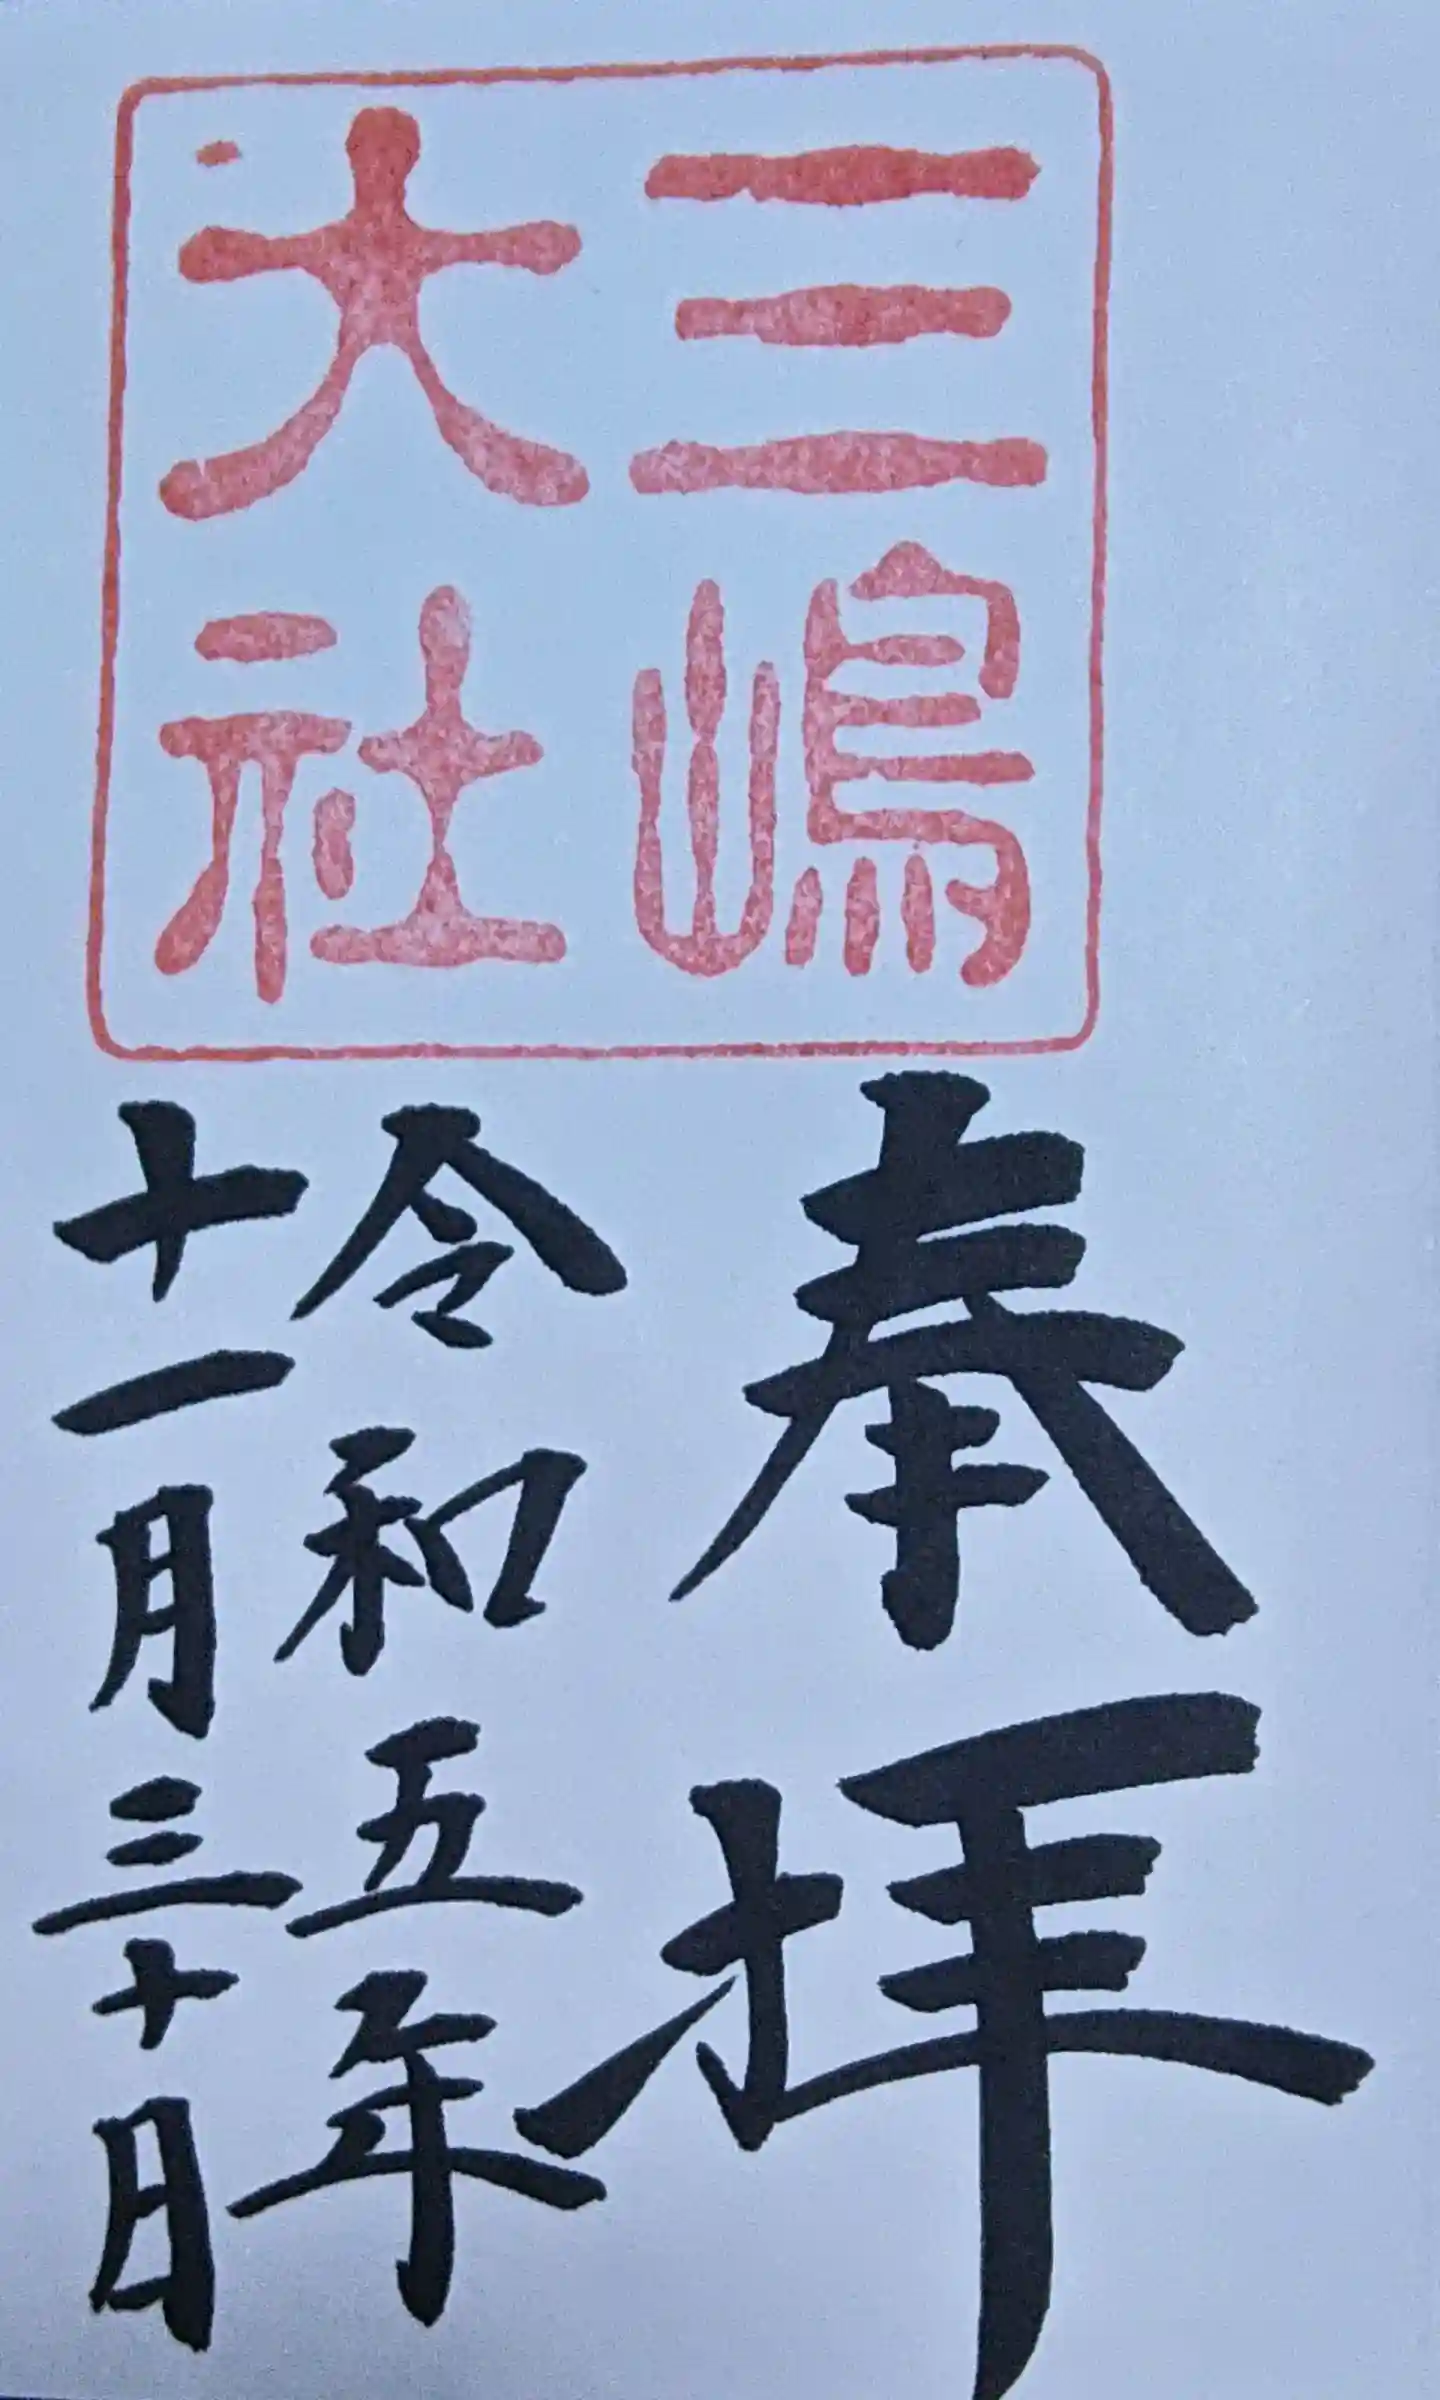 三嶋
大社
奉拝
令和五年
十一月三十日